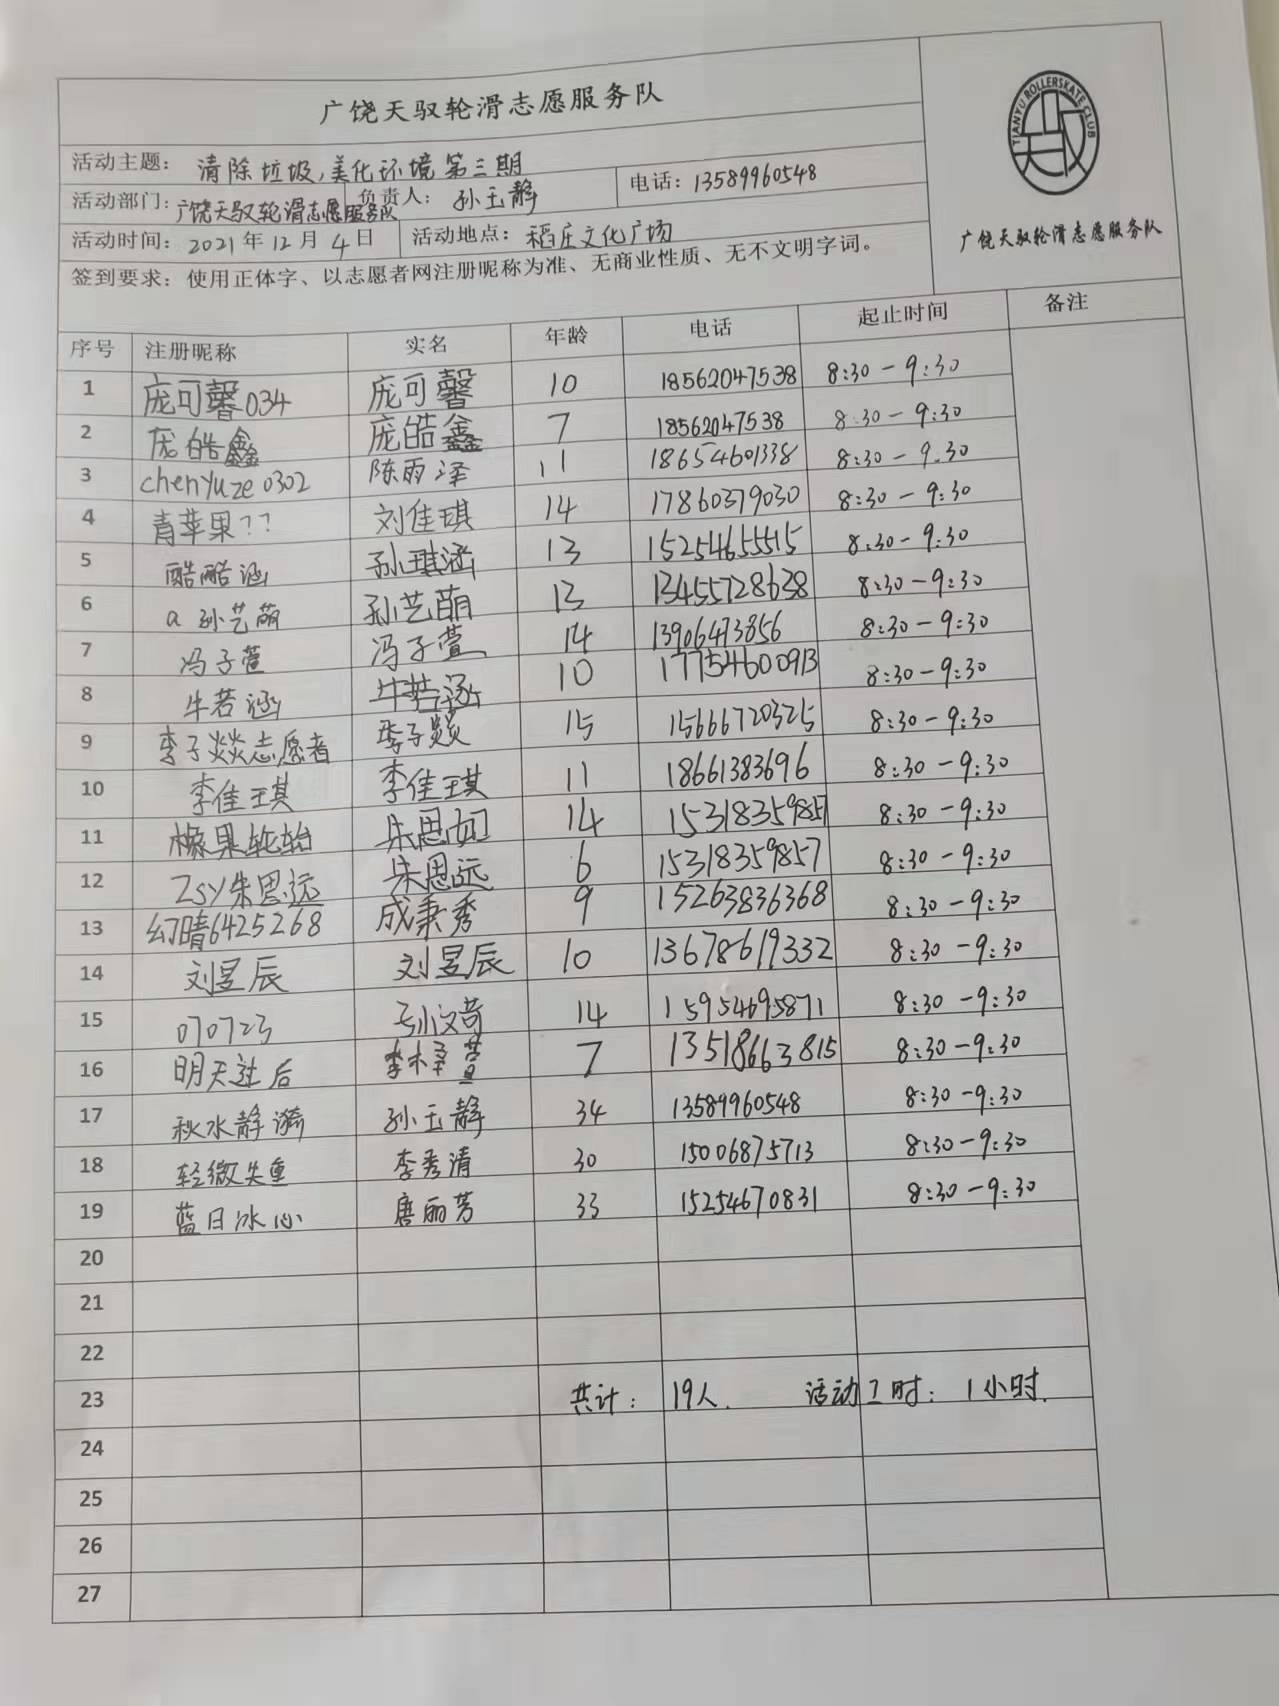 广饶天驭轮滑志愿服务队
TIANYU ROLLERSKATE CLUB
广饶天驭轮滑志愿服务队
活动主题： 清除垃圾,美化环境第三期
活动部门：广饶天驭轮滑志愿服务队 负责人： 孙玉静 电话：13589960548
活动时间： 2021年12月4日 活动地点： 稻庄文化广场
签到要求：使用正体字、以志愿者网注册昵称为准、无商业性质、无不文明字词。
序号 注册昵称 实名 年龄 电话 起止时间 备注
1 庞可馨034 庞可馨 10 18562047538 8:30-9:30
2 庞皓鑫 庞皓鑫 7 18562047538 8:30-9:30
3 chenyuze0302 陈雨泽 11 18654601338 8:30-9.30
4 青苹果?? 刘佳琪 14 17860379030 8:30-9:30
5 酷酷涵 孙琪涵 13 15254655515 8:30-9:30
6 a孙艺萌 孙艺萌 13 13455728638 8:30-9:30
7 冯子萱 冯子萱 14 13906473856 8:30-9:30
8 牛若涵 牛若涵 10 17754600913 8:30-9:30
9 李子燚志愿者 李子燚 15 15666720325 8:30-9:30
10 李佳琪 李佳琪 11 18661383696 8:30-9:30
11 橡果轮胎 朱思如 14 15318359857 8:30-9:30
12 Zsy朱思远 朱思远 6 15318359857 8:30-9:30
13 幻晴6425268 成秉秀 9 15263836368 8:30-9:30
14 刘昱辰 刘昱辰 10 13678619332 8:30-9:30
15 070723 孙文苛 14 15954695871 8:30-9:30
16 明天过后 李梓萱 7 13518663815 8:30-9:30
17 秋水静漪 孙玉静 34 13589960548 8:30-9:30
18 轻微失重 李秀清 30 15006875713 8:30-9:30
19 蓝日冰心 唐丽芳 33 15254670831 8:30-9:30
20
21
22
23 共计： 19人. 活动工时： 1小时.
24
25
26
27